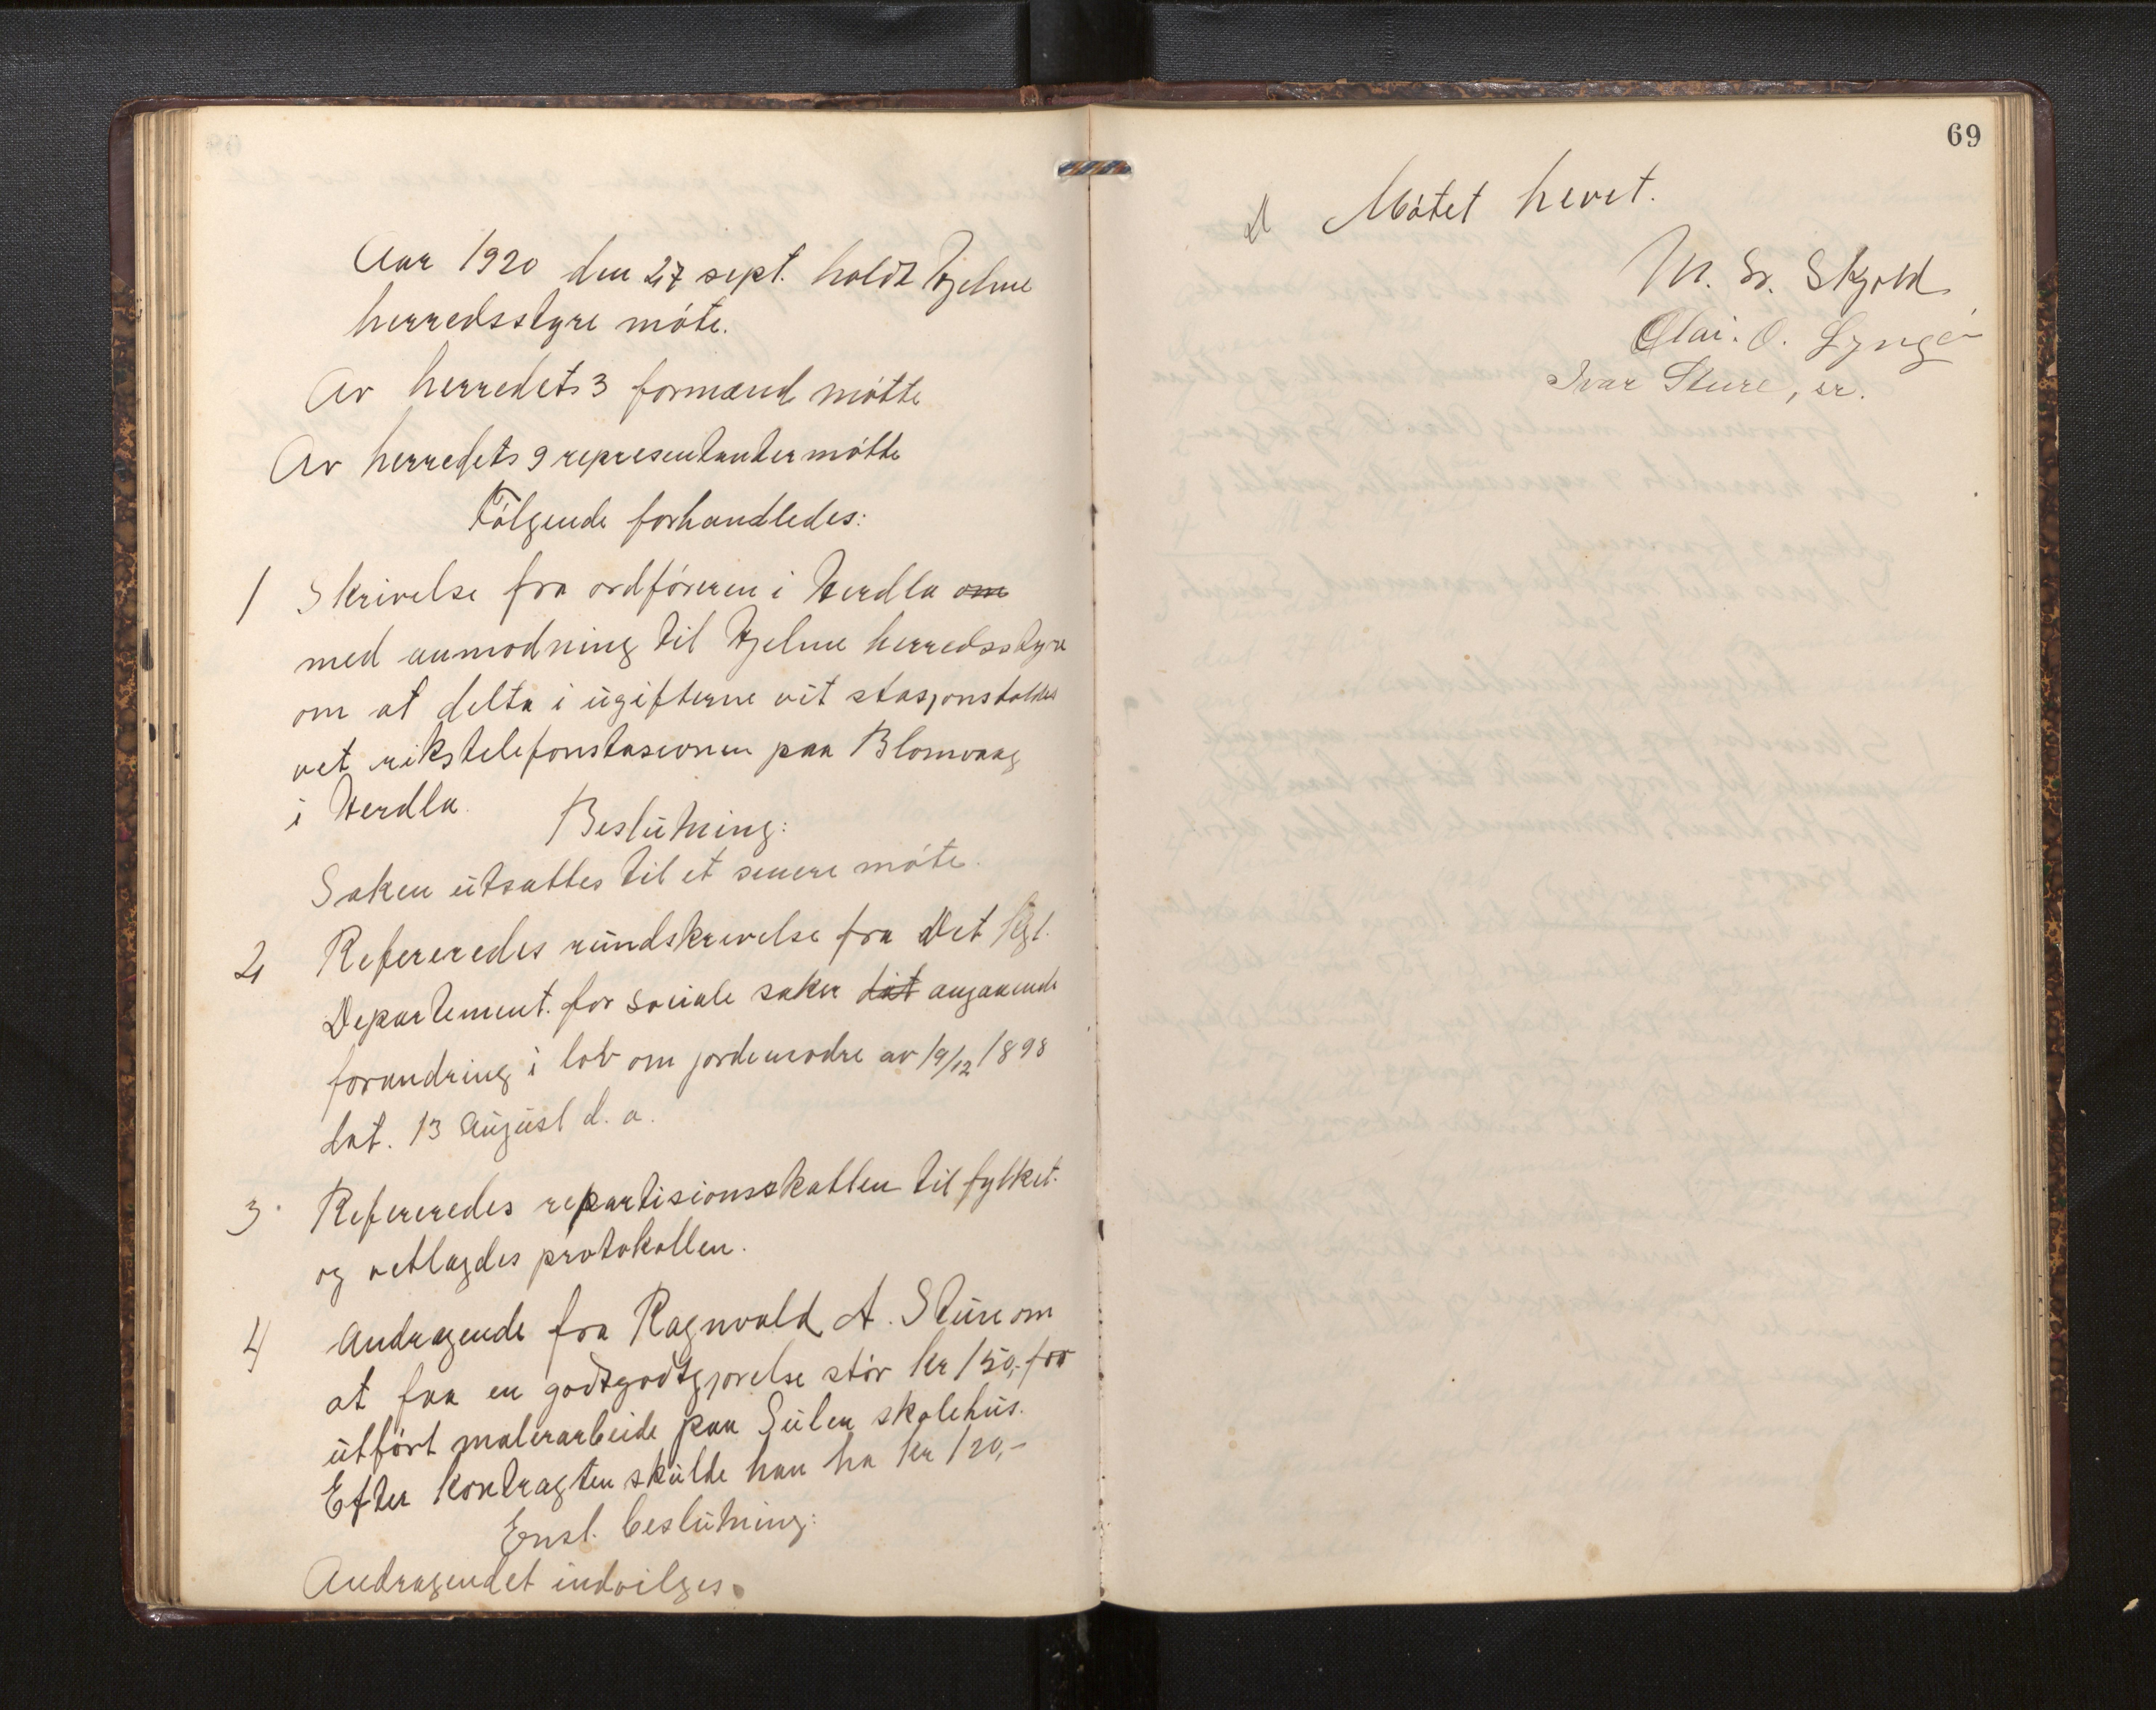 Aar 1920 den 27 sept. holdt Hjelme
herredsstyre møte.
Av herredets 3 formænd møtte
Av herredets 9 representanter møtte
Følgende forhandledes:
1 Skrivelse fra ordføreren i Herdla om
med anmodning til Hjelme herredsstyre
om at delta i ugifterne vit stasjonsholdet
vet rikstelefonstasionen paa Blomvaag
i Herdla.
Beslutning:
Saken utsattes til et senere møte.
2 Refereredes rundskrivelse fra Det Kgl.
Departement. for sociale saker dat angaaende
forandring i lov om jordemodre av 19/12 1898
dat. 13 august d. a.
3 Refereredes repartisionsskatten til fylket.
og vetlagdes protokollen.
4 Andragende fra Ragnvald A. Sture om
at faa en godtgodtgjørelse stør kr 150,- for
utført malerarbeide paa Sulen skolehus.
Efter kontragten skulde han ha kr 120,-
Ensl. beslutning:
Andragendet indvilges.
69
Møtet hevet.
M. Sr. Skjold
Olai. O. Lyngø
Ivar Sture, sr.